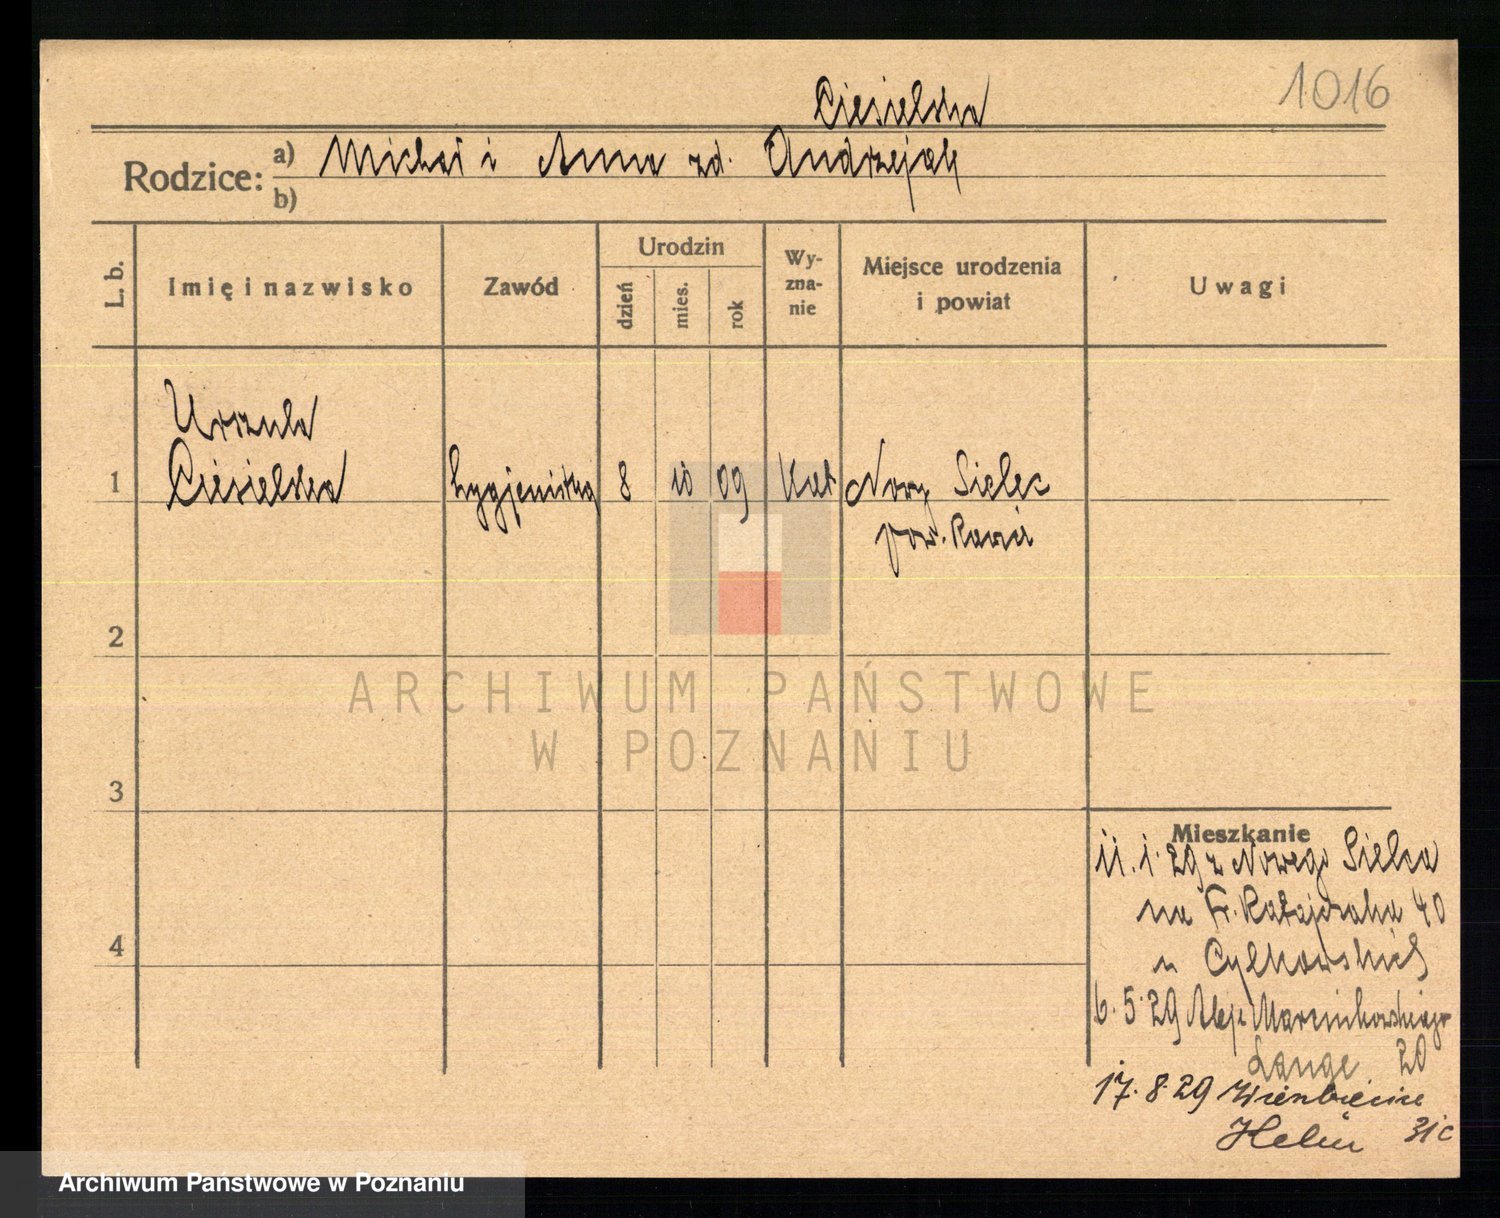 1016
Ciesielska
Rodzice: a) Michał i Anna zd. Andrzejak
b)
L. b. Imię i nazwisko Zawód Urodzin dzień mies. rok Wyznanie Miejsce urodzenia i powiat Uwagi
Urszula
1 Ciesielska hygjenistka 8 10 09 Kat Nowy Sielec
pow. Rawicz
2
ARCHIWUM PAŃSTWOWE
W POZNANIU
3
Mieszkanie
11.1.29 z Nowego Sielca
na Fr. Ratajczaka 40
u Cylkowskich
6.5.29 Aleje Marcinkowskiego
Lange 20
17.8.29 Wierzbięcice
31c
Archiwum Państwowe w Poznaniu